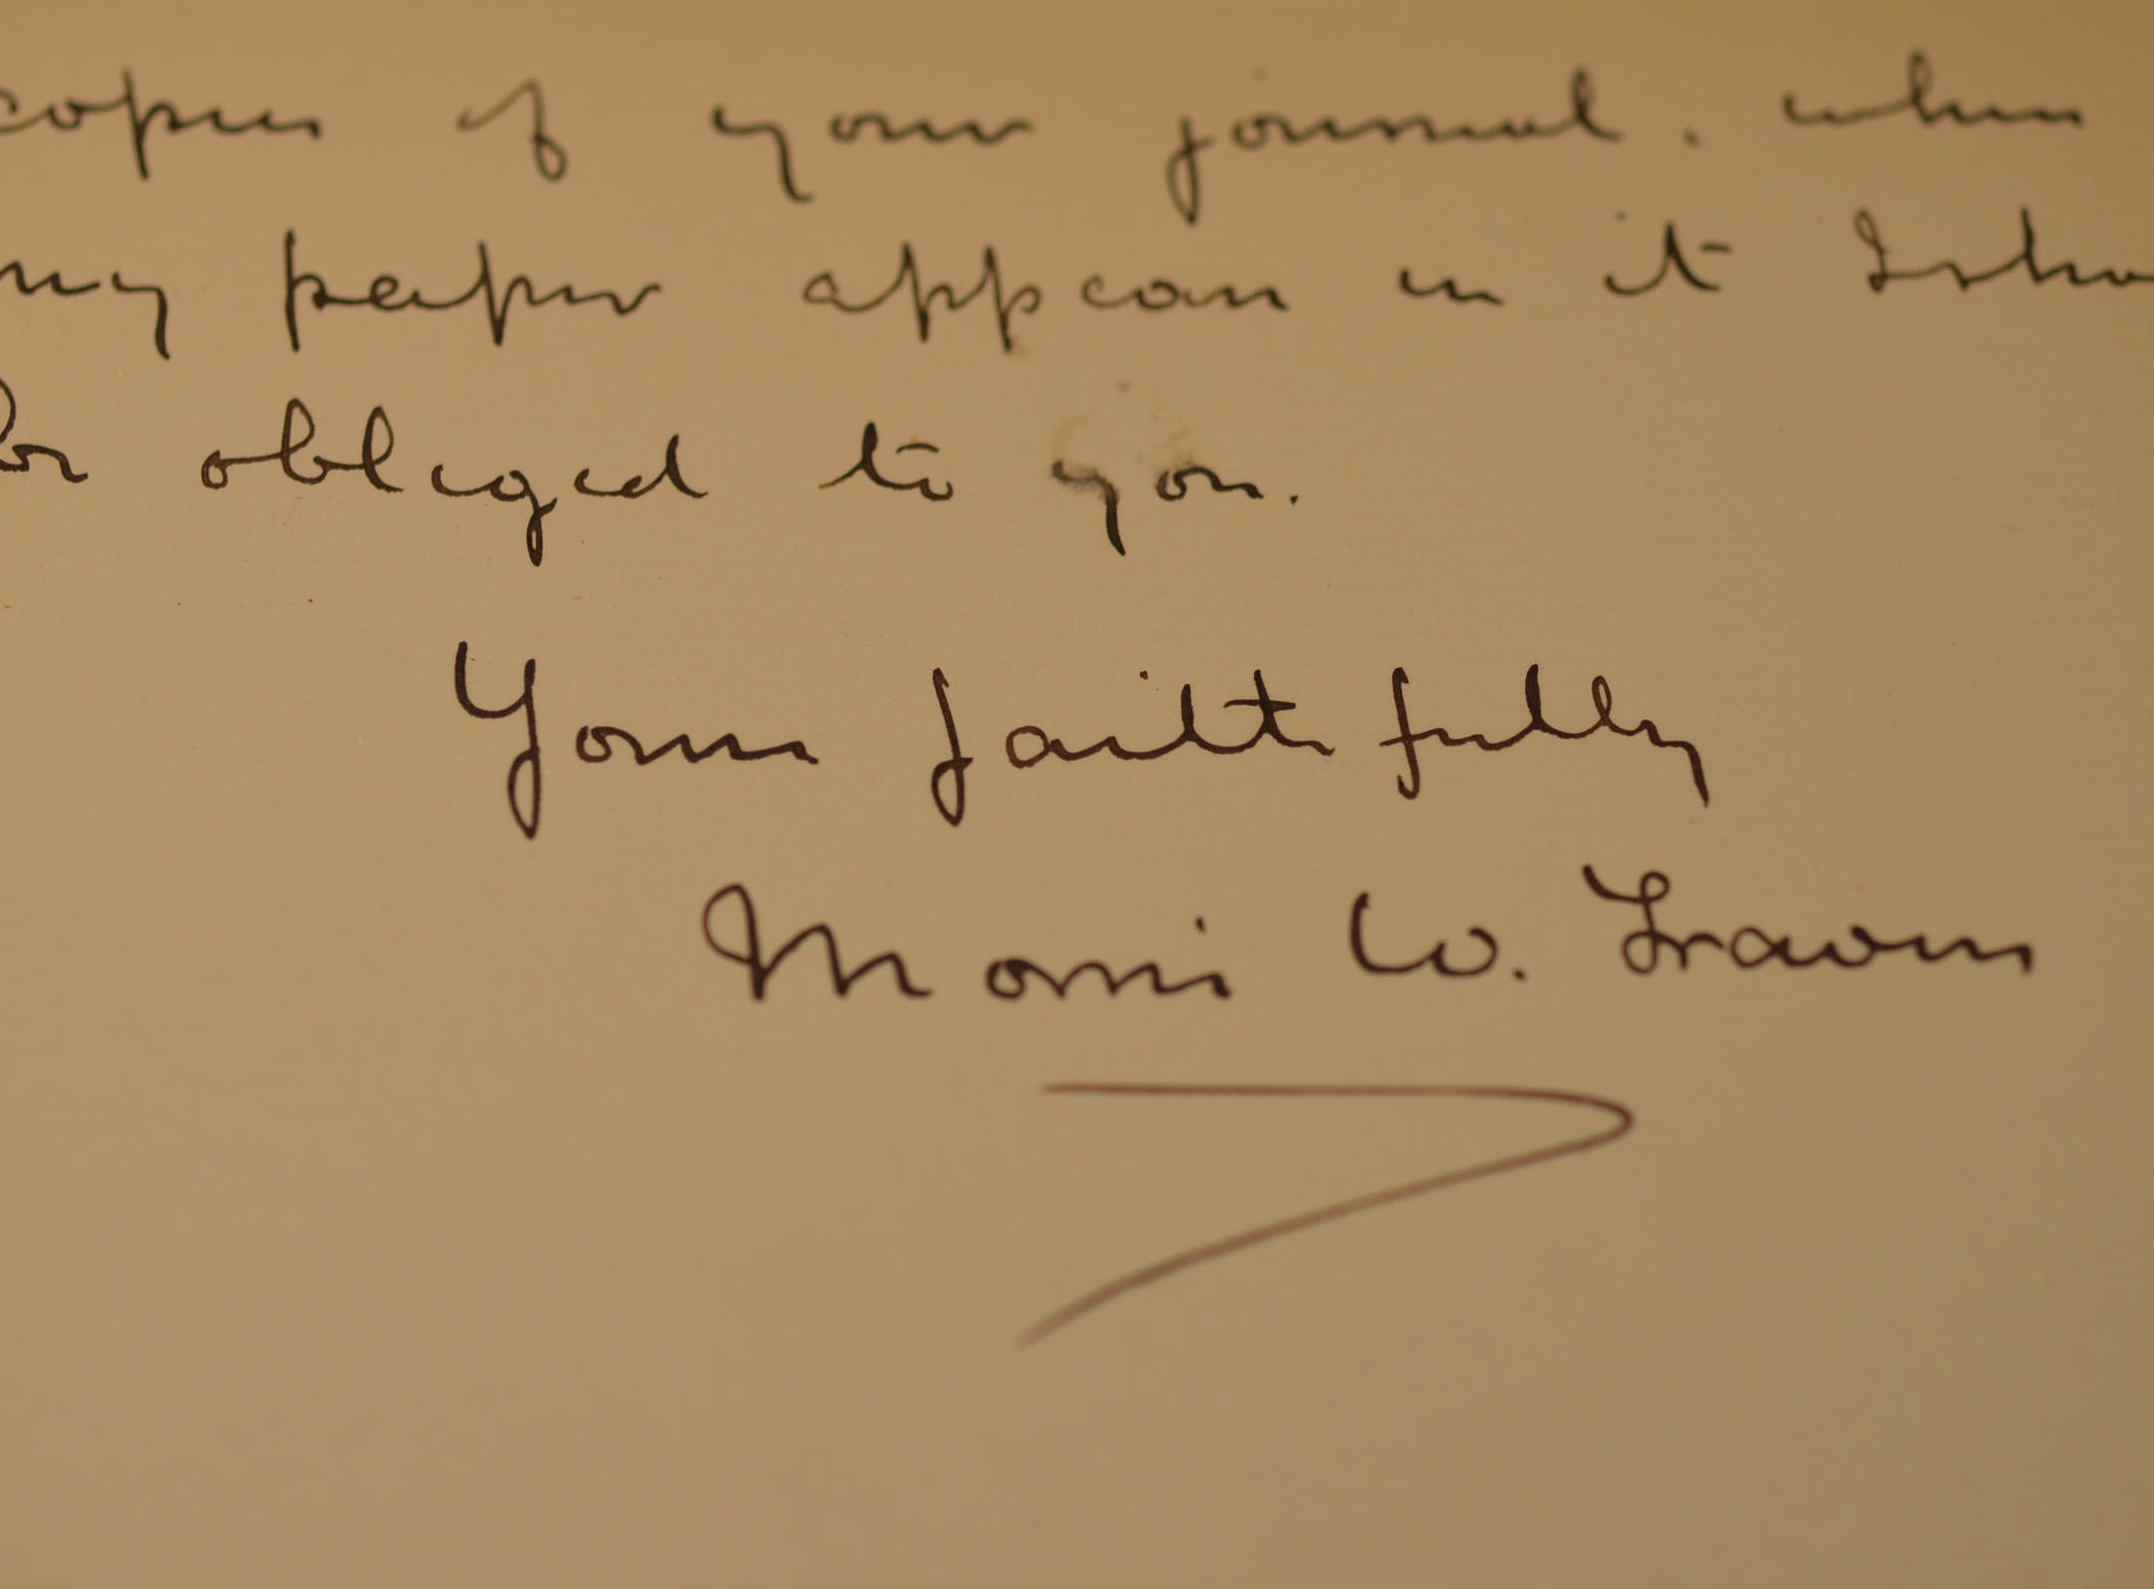 copies of your journal. when
my paper appears in it I shou
be obliged to you.
Yours faithfully
Morris W. Travers